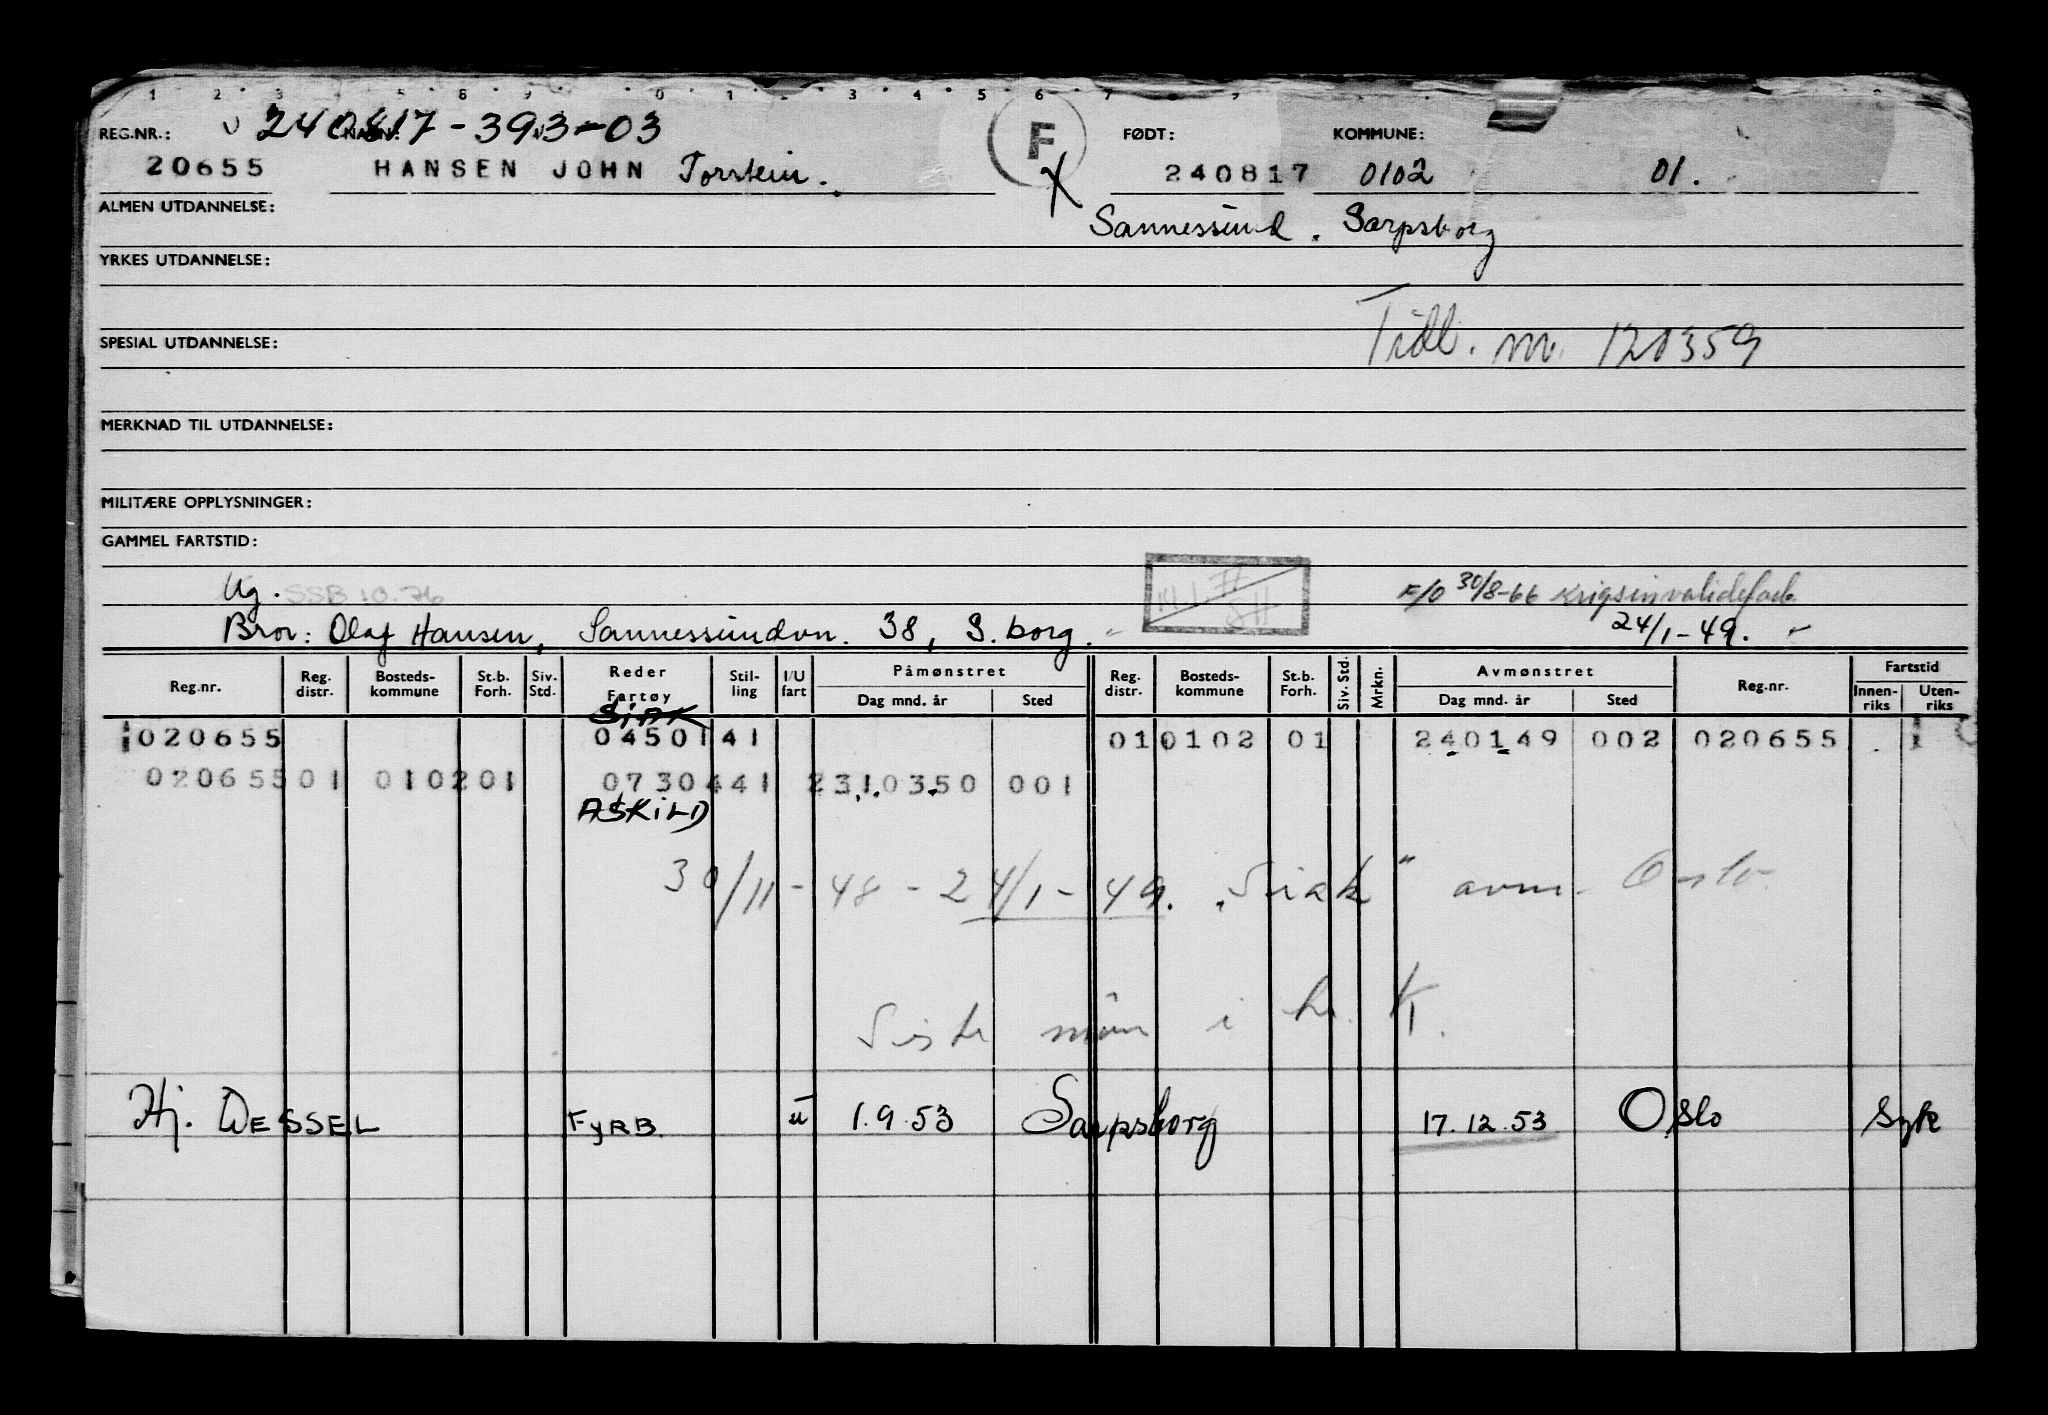 1 2 3 4 5 6 7 8 9 0 1 2 3 4 5 6 7 8 9
REG.NR.: 240817-393-03 NAVN: F FØDT: KOMMUNE:
20655 HANSEN JOHN Torstein. 240817 0102 01.
ALMEN UTDANNELSE: Sannessund. Sarpsborg
YRKES UTDANNELSE:
SPESIAL UTDANNELSE: Tidl. nr. 120359
MERKNAD TIL UTDANNELSE:
MILITÆRE OPPLYSNINGER:
GAMMEL FARTSTID:
Ug. SSB 10.76 F/O 30/8-66 Krigsinvalidesak
Bror: Olaf Hansen, Sannessundvn. 38, S.borg. 24/1-49.
Reg.nr. Reg. distr. Bosteds-kommune St.b. Forh. Siv. Std. Reder Fartøy Stil-ling I/U fart Påmønstret Dag mnd. år Sted Reg. distr. Bosteds-kommune St.b. Forh. Siv. Std. Mrkn. Avmønstret Dag mnd. år Sted Reg.nr. Fartstid Innen-riks Uten-riks
SIAK
020655 0450141 01 0102 01 240149 002 020655
020655 01 0102 01 0730441 2310350 001
ASKILD
30/11-48-24/1-49. "Siak" avm. Oslo
Siste møn i h. K.
Hj. WESSEL FYRB. u 1.9.53 Sarpsborg 17.12.53 Oslo Syk